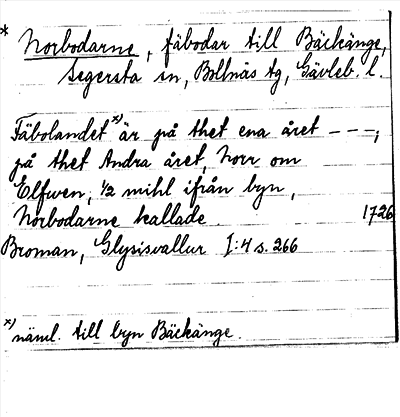 * Norbodarne, fäbodar till Bäckänge,
Segersta sn, Bollnäs tg, Gävleb. l.
Fäbolandet x) är på thet ena året – – –;
på thet Andra året, Norr om
Elfwen, 1/2 mihl ifrån byn,
Norbodarne kallade 1726
Broman, Glysisvallur I:4 s. 266
x) näml. till byn Bäckänge.